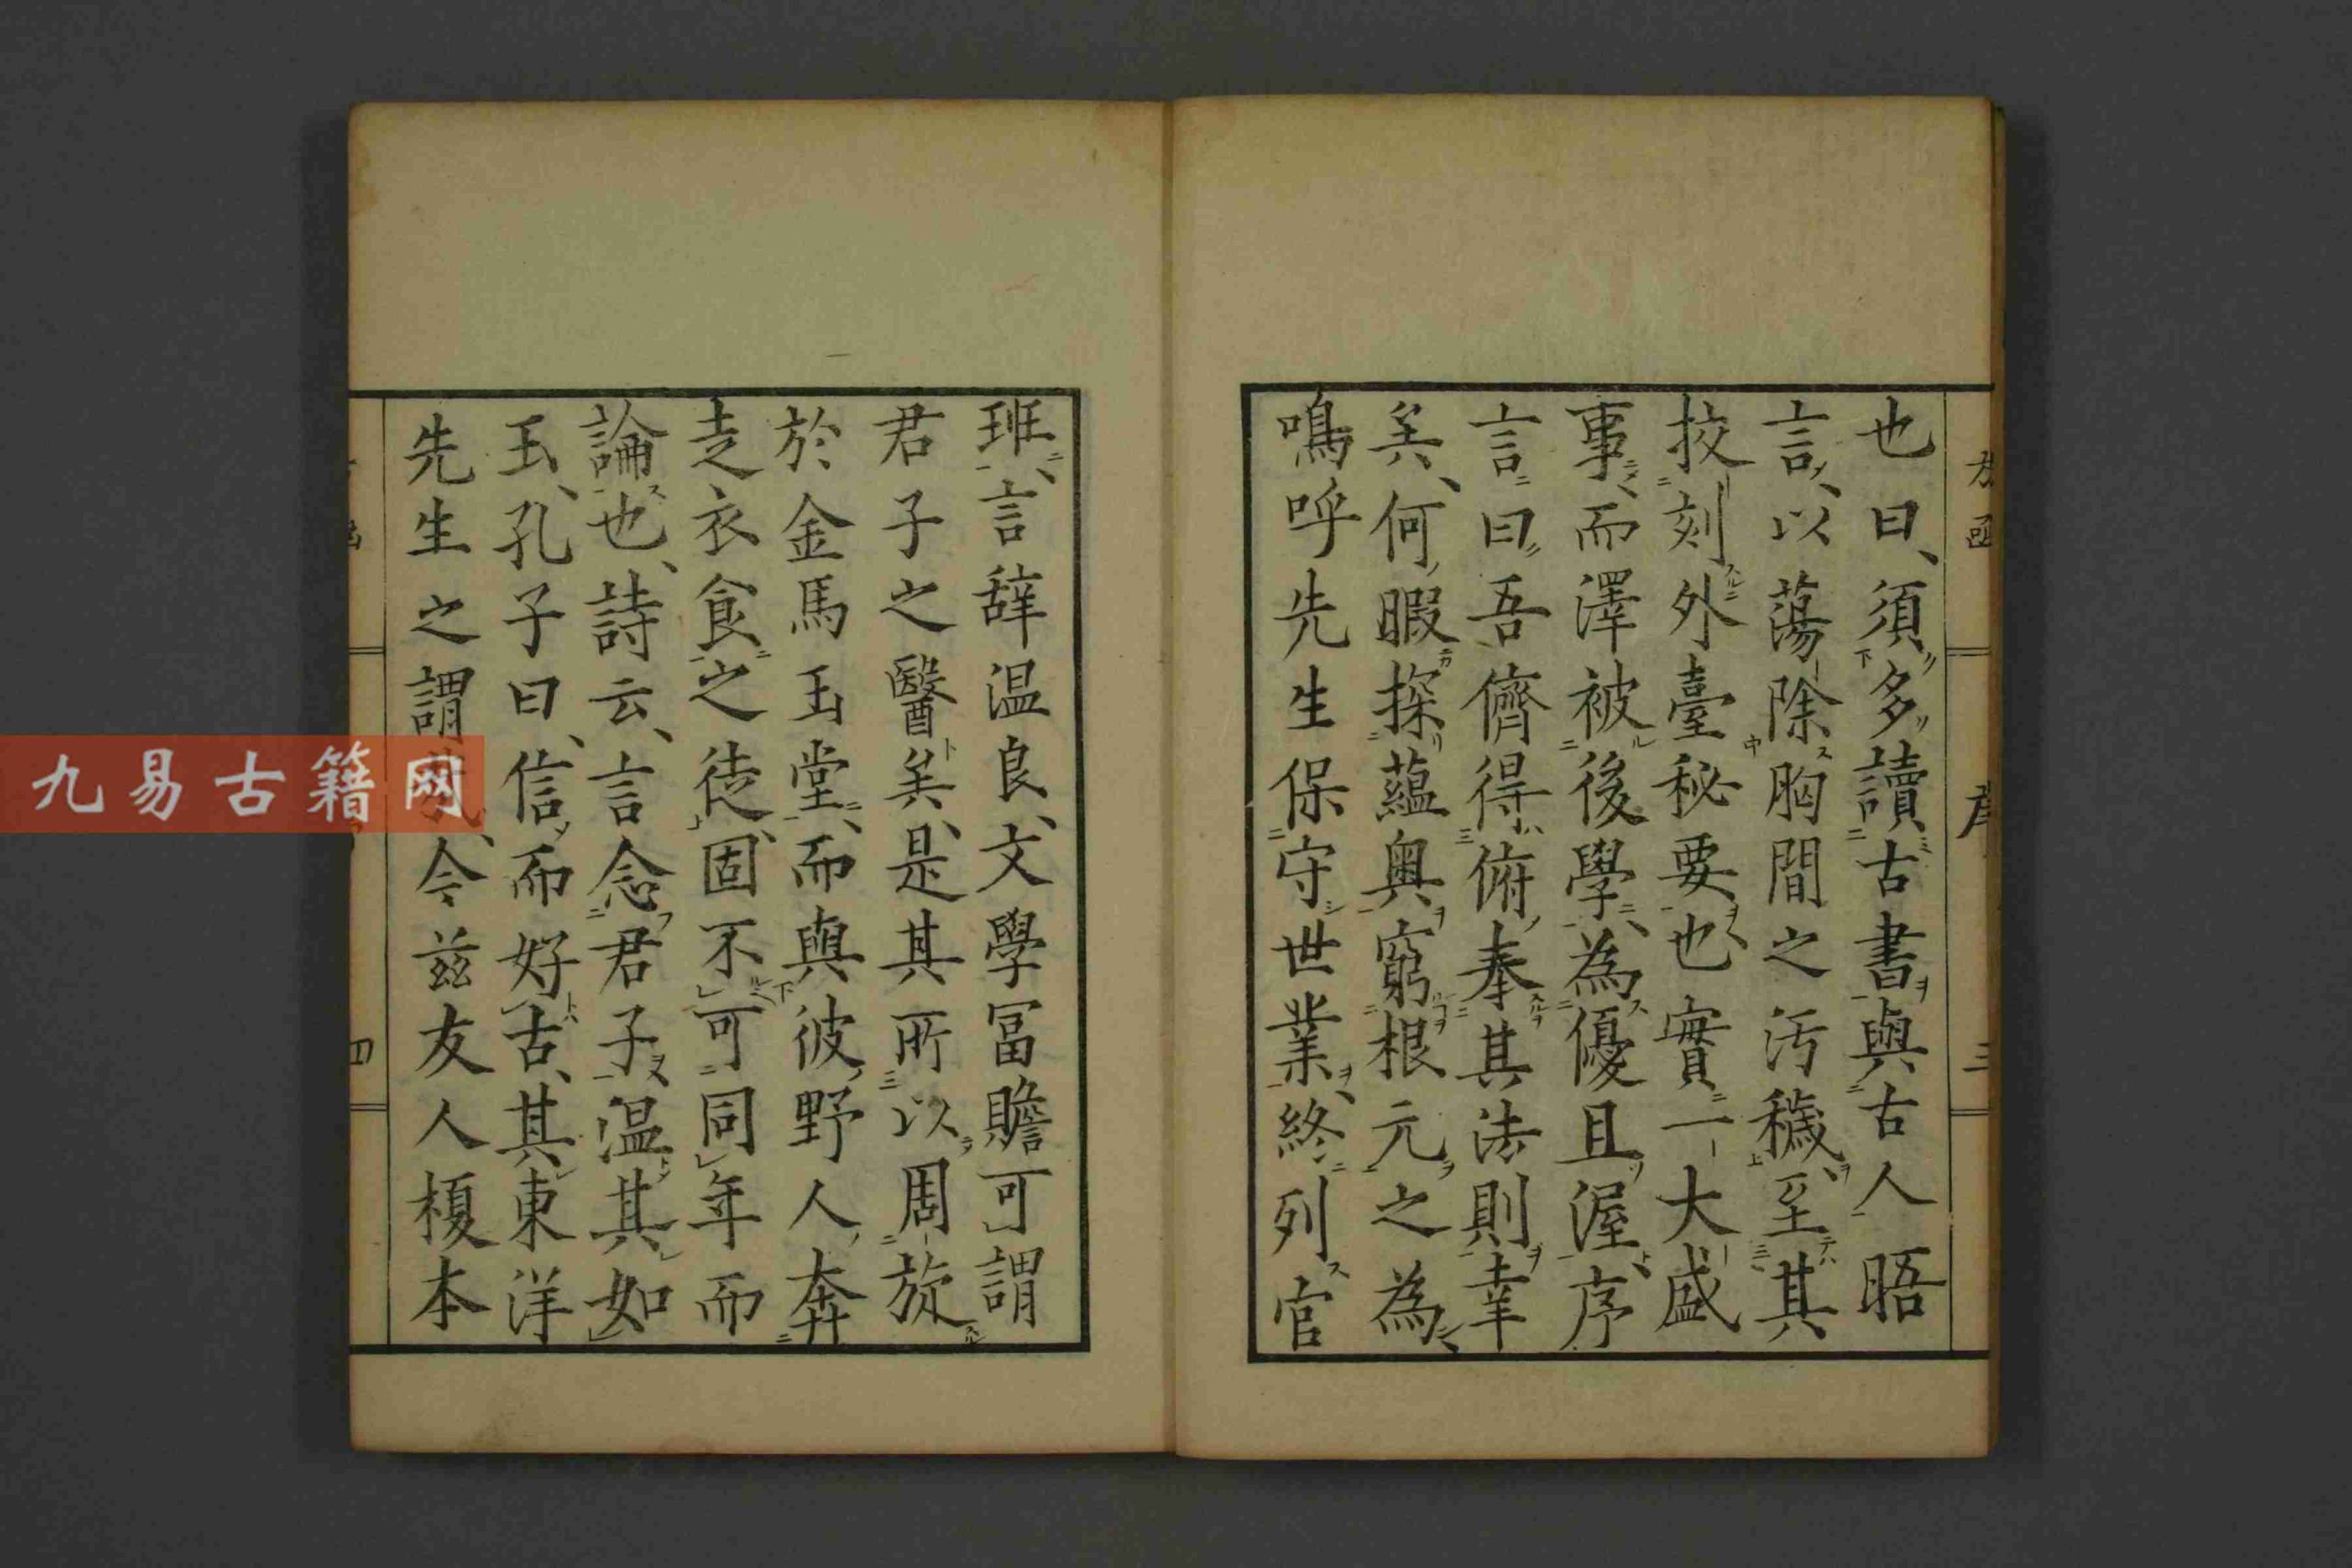 也曰、須多讀古書與古人晤
言、以蕩除胸間之汚穢、至其
挍刻外臺秘要、也實一大盛
事、而澤被後學、為優且渥、序
言曰吾儕得俯奉其法則幸
矣、何暇探蘊奥窮根元之為
嗚呼先生保守世業、終列官
序
三
班、言辞温良、文學冨贍可謂
君子之醫矣、是其所以周旋
於金馬玉堂、而與彼野人奔
走衣食之徒、固不可同年而
論也、詩云、言念君子温其如
玉、孔子曰、信而好古、其東洋
先生之謂、今兹友人榎本
四
九易古籍网